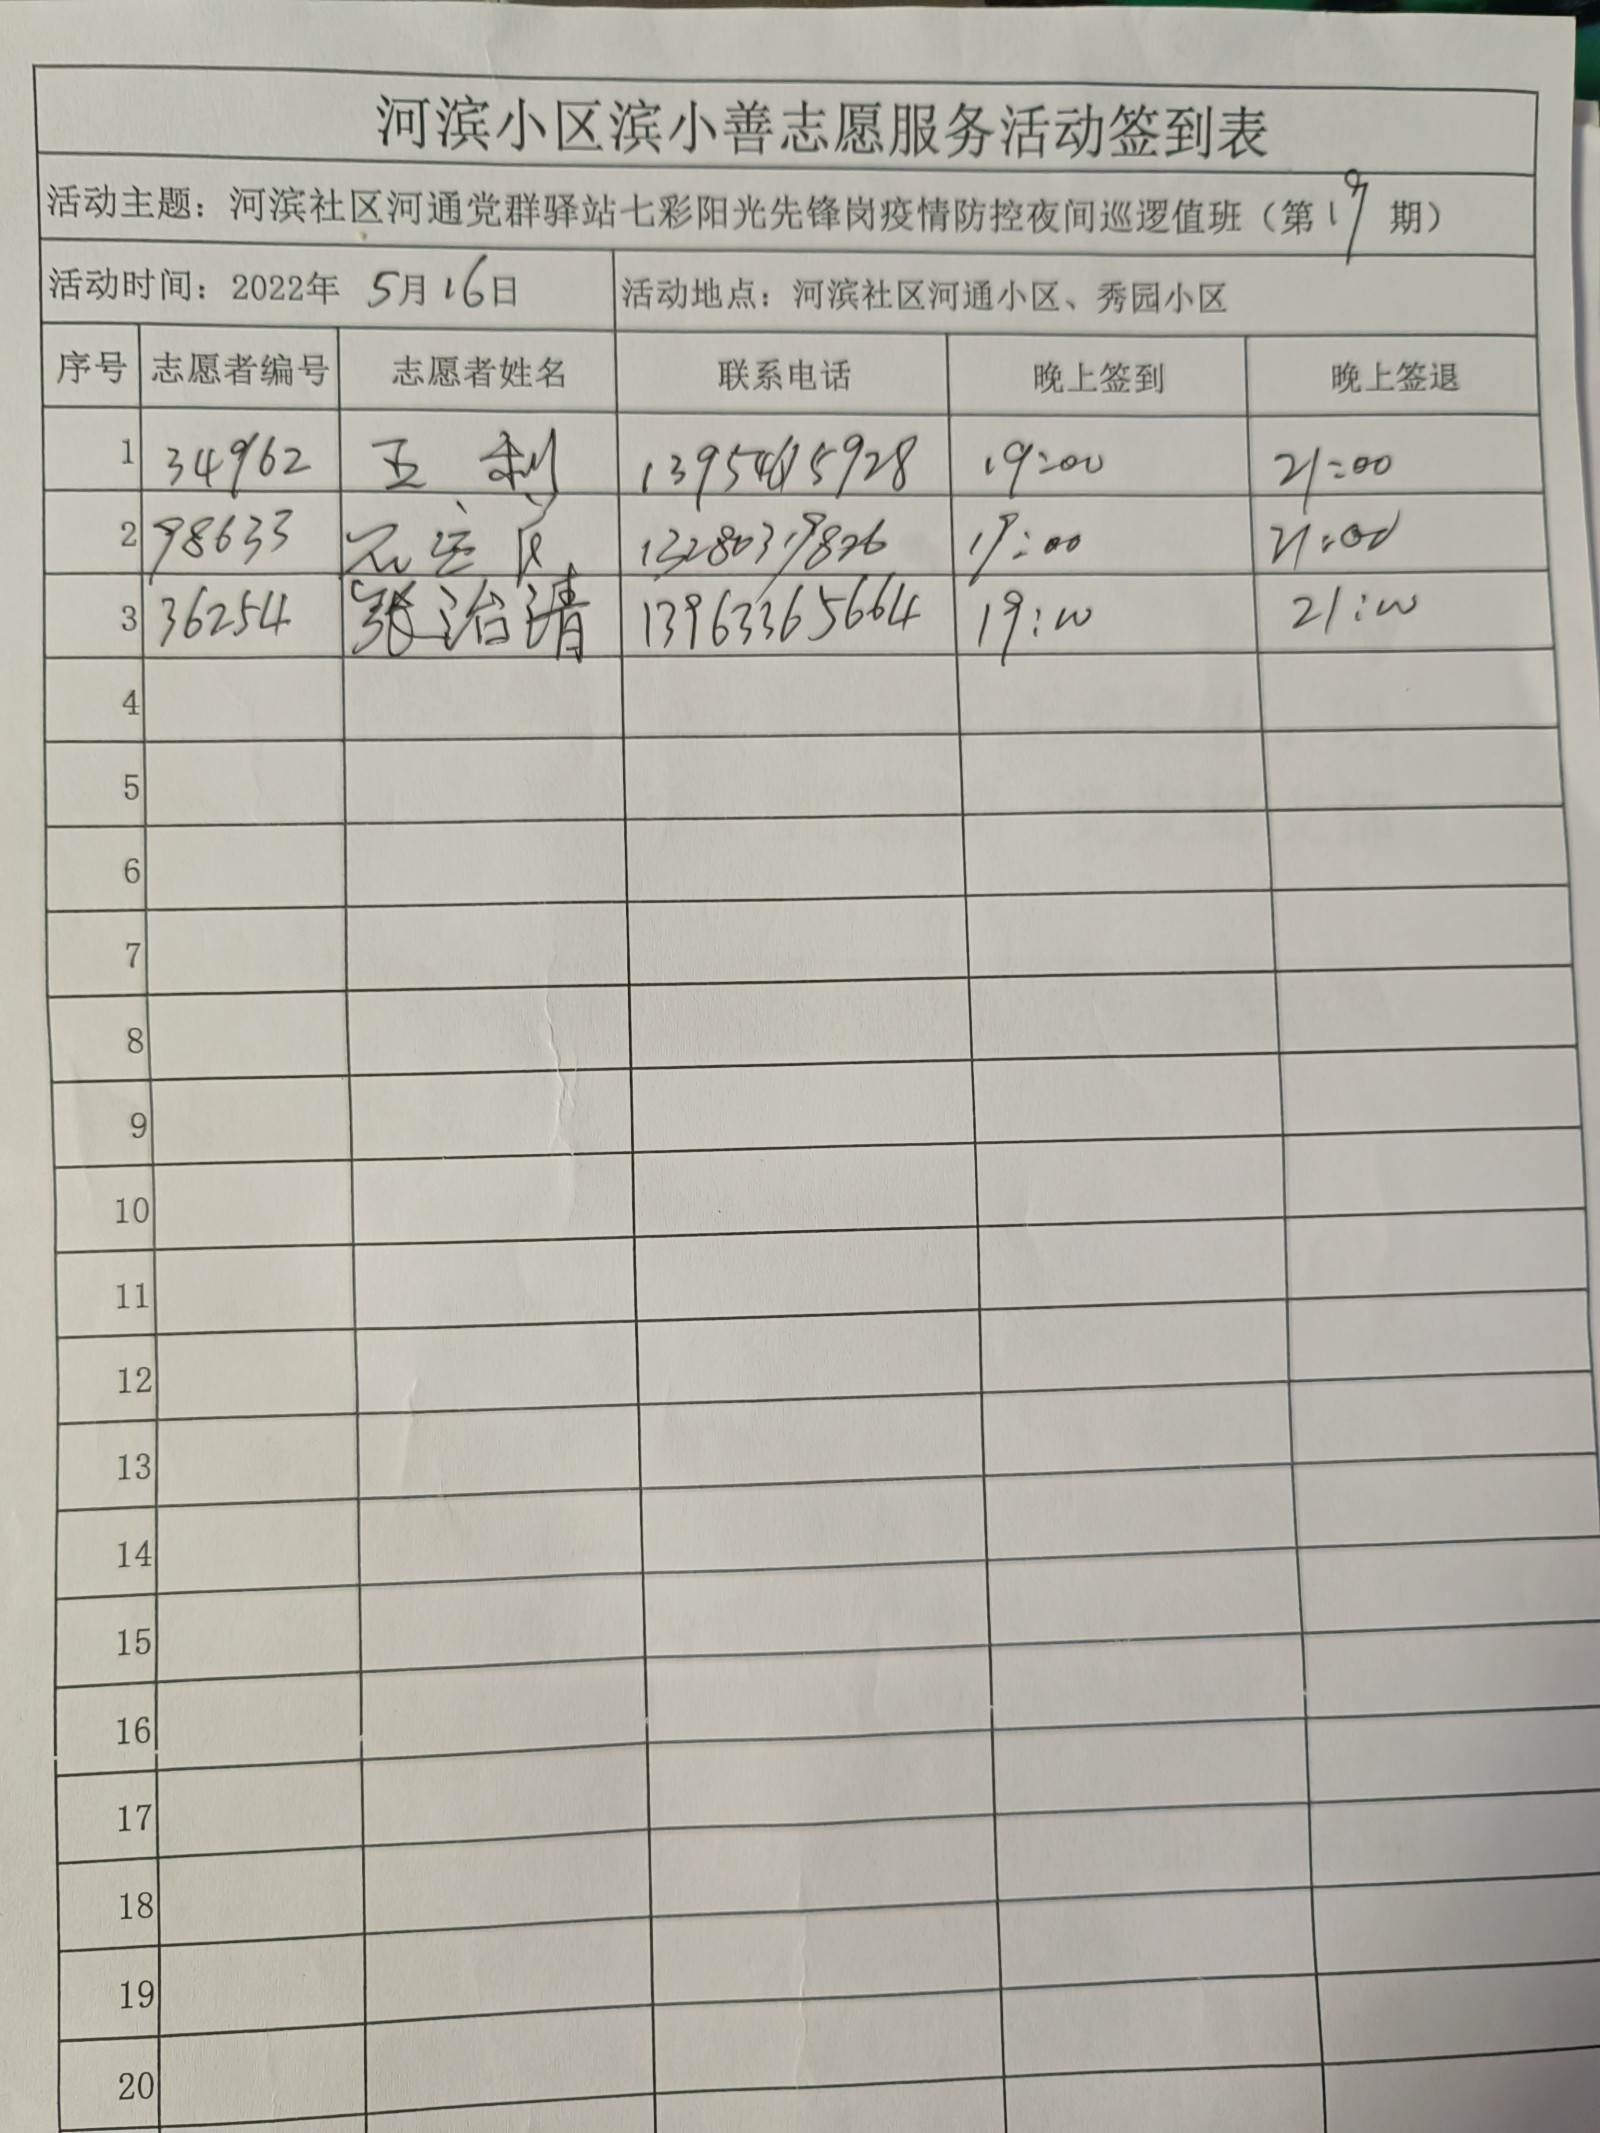 河滨小区滨小善志愿服务活动签到表
活动主题：河滨社区河通党群驿站七彩阳光先锋岗疫情防控夜间巡逻值班（第19期）
活动时间：2022年 5月16日 活动地点：河滨社区河通小区、秀园小区
序号 志愿者编号 志愿者姓名 联系电话 晚上签到 晚上签退
1 34962 王利 19:00 21:00
2 98633 13280319826 19:00 21:00
3 36254 张治清 13963365664 19:00 21:00
4
5
6
7
8
9
10
11
12
13
14
15
16
17
18
19
20